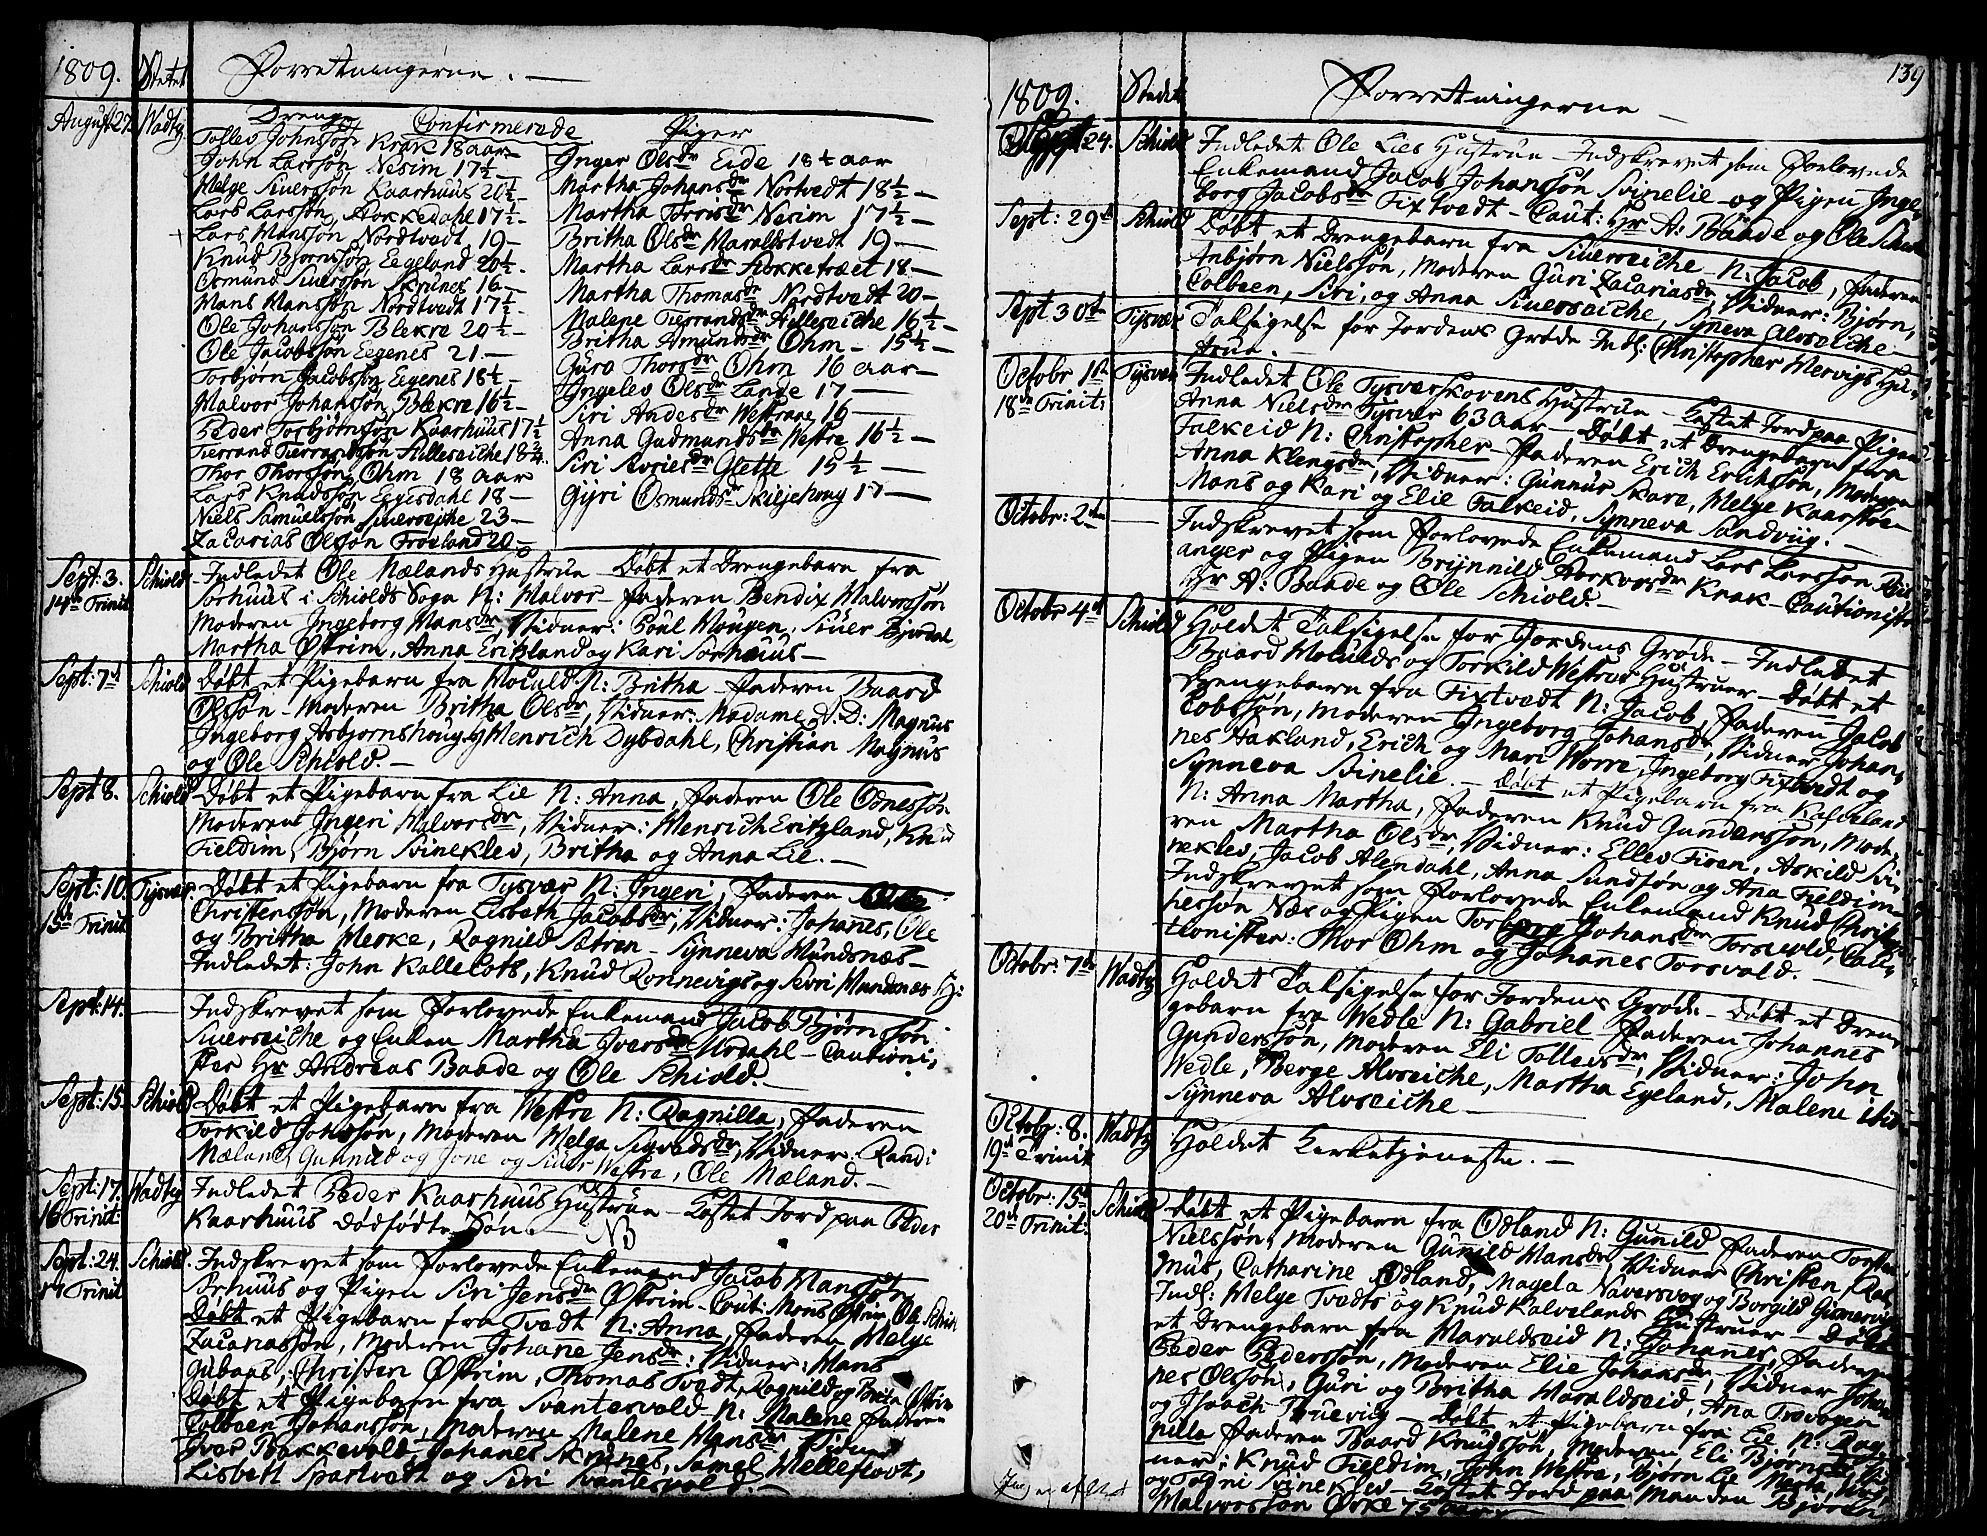 1809. Stedet Forretningerne. —
August 27 Wadby Drenge Confirmerede Piger
Tollev Johnssøn Krak 18 aar
John Larssøn Nesim 17½ —
Helge Siverssøn Kaarhuus 20½
Lars Larssøn Aokkedahl 17½ —
Lars Hanssøn Nordtvedt 19 —
Knud Bjørnssøn Eegeland 20½.
Osmund Siverssøn Skrunes 16 —
Hans Hanssøn Nordtvedt 17½
Ole Johanssøn Blekre 20½ —
Ole Jacobssøn Eegenes 21 —
Torbjørn Jacobssøn Eegenes 18½ —
Halvor Johanssøn Blekre 16½ —
Peder Torbjørnssøn Kaarhuus 17½
Thor Thorssøn Ohm 18 aar
Lars Knudssøn Eggesdahl 18 —
Niels Samuelssøn Siverseiche 23 —
Zacarias Olssøn Frøeland 20 —
Inger Olsdr Eide 18½ aar
Martha Johansdr Nortvedt 18½ —
Martha Torrisdr Nesim 17½ —
Britha Olsdr Haraldstvedt 19 —
Martha Larsdr Stokketræet 18 —
Martha Thomasdr Nordtvedt 20 —
Malene Tierrandsdr Hilleseiche 16½ —
Britha Amundsdr Ohm — 15½ —
Guro Thorsdr Ohm 16 aar —
Ingelev Olsdr Lande 17 —
Siri Andesdr Westraae 16 —
Anna Gudmundsdr Westre 16½ —
Siri Avriesdr Glette 15½ —
Gyri Osmundsdr Skiljehoug 17 —
Sept: 3. Schiold Indledet Ole Mælands Hustrue — Døbt et Drengebarn fra
14de Trinit Sørhuus i Schiolds Sogn N: Halvor — Faderen Bendix Halvorssøn
Moderen Ingeborg Hansdr, Vidner: Poul Hougen, Siver Bjordal,
Martha Østrim, Anna Eritzland og Kari Sørhuus —
Sept: 7d Schiold Døbt et Pigebarn fra Hoculd N: Britha — Faderen Baard
Olssøn — Moderen Britha Olsdr, Vidner: Madame D: D: Magnus
Ingeborg Asbjørnshoug, Henrich Dybdahl, Christian Magnus
og Ole Schiold. —
Sept 8. Schiold Døbt et Pigebarn fra Lie N: Anna, Faderen Ole Odnessøn
Moderen Ingeri Halvorsdr, Vidner: Henrich Eritzland, Knud
Fieldim, Bjørn Svineklev, Britha og Anna Lie. —
Sept: 10. Tysvær. Døbt et Pigebarn fra Tysvær N: Ingeri, Faderen
15de Trinit Christenssøn, Moderen Lisbeth Jacobsdr, Vidner: Johanes, Ole
og Britha Heske, Ragnild Sætren — Synneva Hundsnæs —
Indledet: John Kallelots, Knud Ronnevigs og Sivri Hundsnæs H:
Sept: 14. — Indskrevet som Forlovede Enkemand Jacob Bjørnssøn
Siverseiche og Enken Martha Iversdr Urdahl — Cautioni,
ster Hr Andreas Baade og Ole Schiold. —
Sept: 15. Schiold Døbt et Pigebarn fra Westre N: Ragnilla, Faderen
Torkild Johssøn, Moderen Helga Sigvaldsdr, Vidner: Randi
Mæland, Gunnild og Jone og Siver Westre, Ole Mæland. —
Sept: 17. Wadby Indledet Peder Kaarhuus Hustrue — Kastet Jord paa Peder
16 Trinit: Kaarhuus dødfødte Søn. — NB
Sept: 24. Schiold. Indskrevet som Forlovede Enkemand Jacob Hanssøn
17 Trinit Sørhuus og Pigen Siri Jensdr Østrim — Caut: Mons Østrim, Ole Schiold
Døbt et Pigebarn fra Tvedt N: Anna, Faderen Helge
Zacariassøn, Moderen Johane Jensdr: Vidner: Hans
Gubaas, Christen Østrim, Thomas Tvedt, Ragnild og Brita Østrim
Døbt et Pigebarn fra Svantesvold — N: Malene Faderen
Colbeen Johanssøn, Moderen Malene Hansdr Vidner
Iver Bakkevold, Johanes Skrunes, Samel Helleflodt,
Lisbeth Spartvedt og Siri Svantesvold. —
139
1809. Stedet Forretningerne —
Sept 24. Schiold Indledet Ole Lies Hustrue — Indskrevet som Forlovede
Enkemand Jacob Johanssøn Svinelie — og Pigen Inge,
borg Jacobsdr Fixtvedt — Caut: Hr A: Baade og Ole Schiold
Sept: 29d Schiold Døbt et Drengebarn fra Siverseiche N: Jacob, Faderen
Anbjørn Nielssøn, Moderen Guri Zacariasdr, Vidner: Bjørn,
Colbeen, Siri, og Anna Siverseiche, Syneva Alvseiche —
Sept 30te Tysvær Taksigelse for Jordens Grøde Indl: Christopher Hervigs Hu,
strue. —
Octobr 1te Tysvær Indledet Ole Tysværskovens Hustrue — Kastet Jord paa Pigen
18de Trinit: Anna Nielsdr Tysvær 63 Aar — Døbt et Drengebarn fra
Falkeid N: Christopher — Faderen Erich Erichssøn, Moderen
Anna Klengsdr, Vidner: Gunnar Skare, Helge Kaarstøe —
Hans og Kari og Elie Falkeid, Synneva Sandvig. —
Octobr: 2den — Indskrevet som Forlovede Enkemand Lars Larssøn
anger og Pigen Brynnild Aorkvorsdr Krak — Cautionister
Hr A: Baade og Ole Schiold. —
Octobr 4de Schiold Holdet Taksigelse for Jordens Grøde — Indledet
Baard Hoculds og Torkild Westres Hustruer — Døbt et
Drengebarn fra Fixtvedt N: Jacob, Faderen Jacob
Jacobssøn, Moderen Ingeborg Johansdr, Vidner Johan,
nes Aakland, Erich og Mari Horre, Ingeborg Fixtvedt og
Synneva Svinelie. — Døbt et Pigebarn fra Kalveland
N: Anna Martha, Faderen Knud Gunderssøn, Mode,
ren Martha Olsdr, Vidner: Ellev Tiren, Askild Svi,
neklev, Jacob Alendahl, Anna Sundsøn og Ana Fieldim
Indskrevet som Forlovede Enkemand Knud Christo,
phersøn Næs og Pigen Torborg Johansdr Torsvold, Cau,
tionister: Thor Ohm og Johanes Torsvold. —
Octobr: 7de Wadby Holdet Taksigelse for Jordens Grøde — Døbt et Dren,
gebarn fra Wedle N: Gabriel Faderen Johannes
Gunderssøn, Moderen Eli Tolleivsdr, Vidner: John
Wedle, Berge Alvseiche, Martha Egeland, Malene
Synneva Alvseiche —
Octobr: 8. Wadby Holdet Kirketjeneste. —
19de Trinit
Octobr: 15d Schiold Døbt et Pigebarn fra Odland N: Gunild Faderen Torsten
20de Trinit: Nielssøn, Moderen Gunild Hansdr Vidner Christen, Ras,
mus, Catharine Odland, Magela Naversvog og Borgild
Indl: Helge Tvedts og Knud Kalvelands Hustruer — Døbt
et Drengebarn fra Haraldseid N: Johanes, Faderen
Peder Pederssøn, Moderen Elie Johansdr, Vidner Johan
nes Olssøn, Guri og Britha Haraldseid, Ana Trovogen
og Isaach Truevig — Døbt et Pigebarn fra Lie N: Rag
nille Faderen Baard Knudssøn, Moderen Eli Bjørnsdr, Vid
ner: Knud Fieldim, John Westre, Bjørn Lie
og Togni Svineklev — Kastet Jord paa Manden Bjørn
Halvorssøn Ørke 75 aar